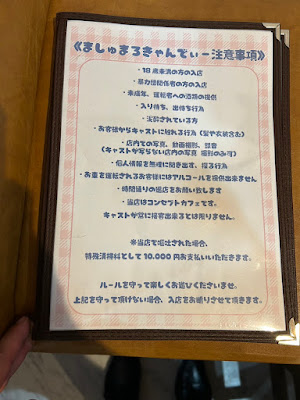 《ましゅまろきゃんでぃー注意事項》
・18歳未満の方の入店
・暴力団関係者の方の入店
・未成年、運転者への酒類の提供
・入り待ち、出待ち行為
・泥酔されている方
・お客様からキャストに触れる行為(髪や衣装含む)
・店内での写真、動画撮影、録音
(キャストが写らない店内の写真 撮影のみ可)
・個人情報を無理に聞き出す、探る行為
・お車を運転されるお客様にはアルコールを提供出来ません
・時間通りの退店をお願い致します
・当店はコンセプトカフェです。
キャストが常に接客出来るとは限りません。
※当店で嘔吐された場合、
特殊清掃料として10.000円お支払いいただきます。
ルールを守って楽しくお遊びくださいませ。
上記を守って頂けない場合、入店をお断りさせて頂きます。